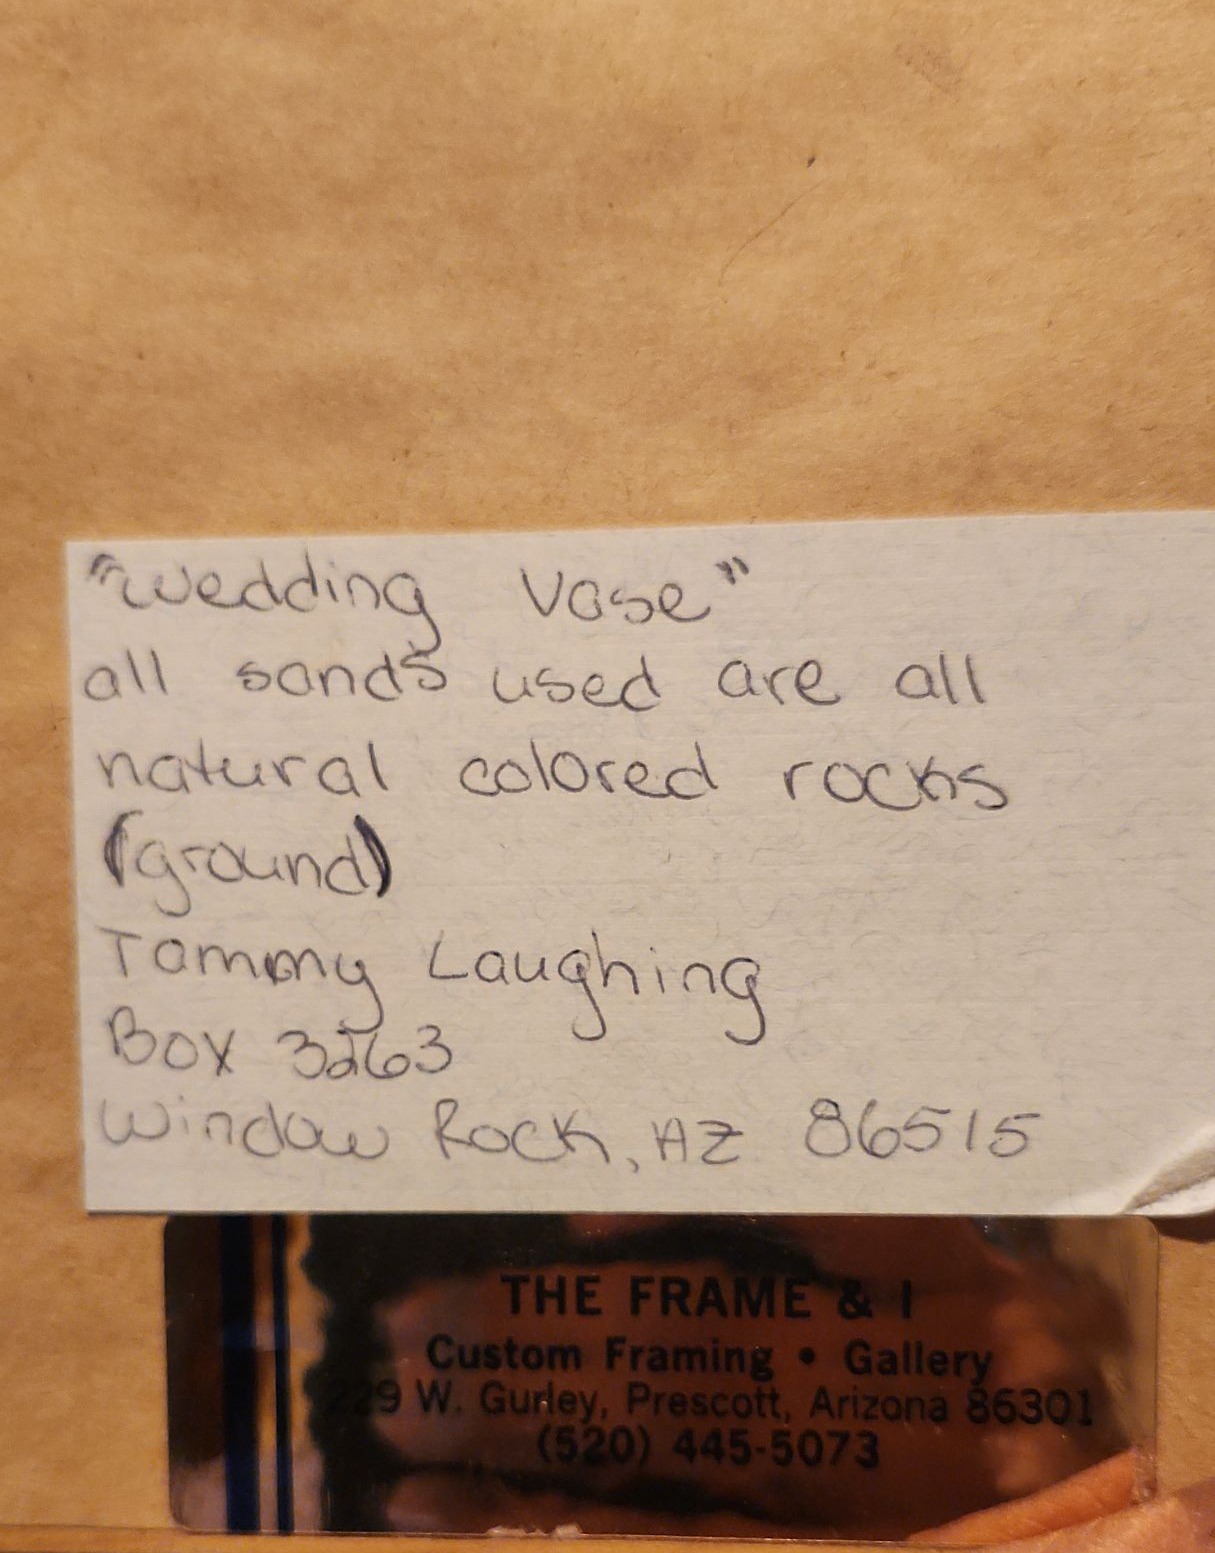 "Wedding Vase"
all sands used are all
natural colored rocks
(ground)
Tammy Laughing
Box 3263
Window Rock, AZ 86515
THE FRAME & I
Custom Framing • Gallery
229 W. Gurley, Prescott, Arizona 86301
(520) 445-5073